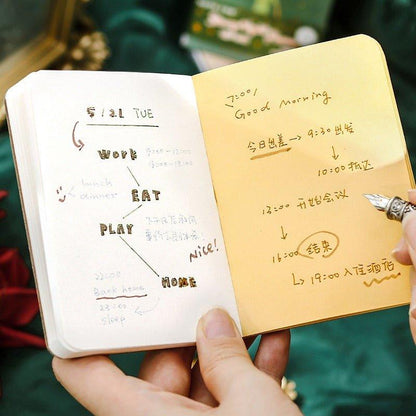 5/21 TUE
Work
9:00-12:00
EAT
lunch
dinner
PLAY
Nice!
HOME
22:00
Back home
23:00
sleep
7:00
Good Morning
今日出差→9:30出发
↓
10:00抵达
12:00 开始会议
↓
16:00 结束
↳19:00 入住酒店